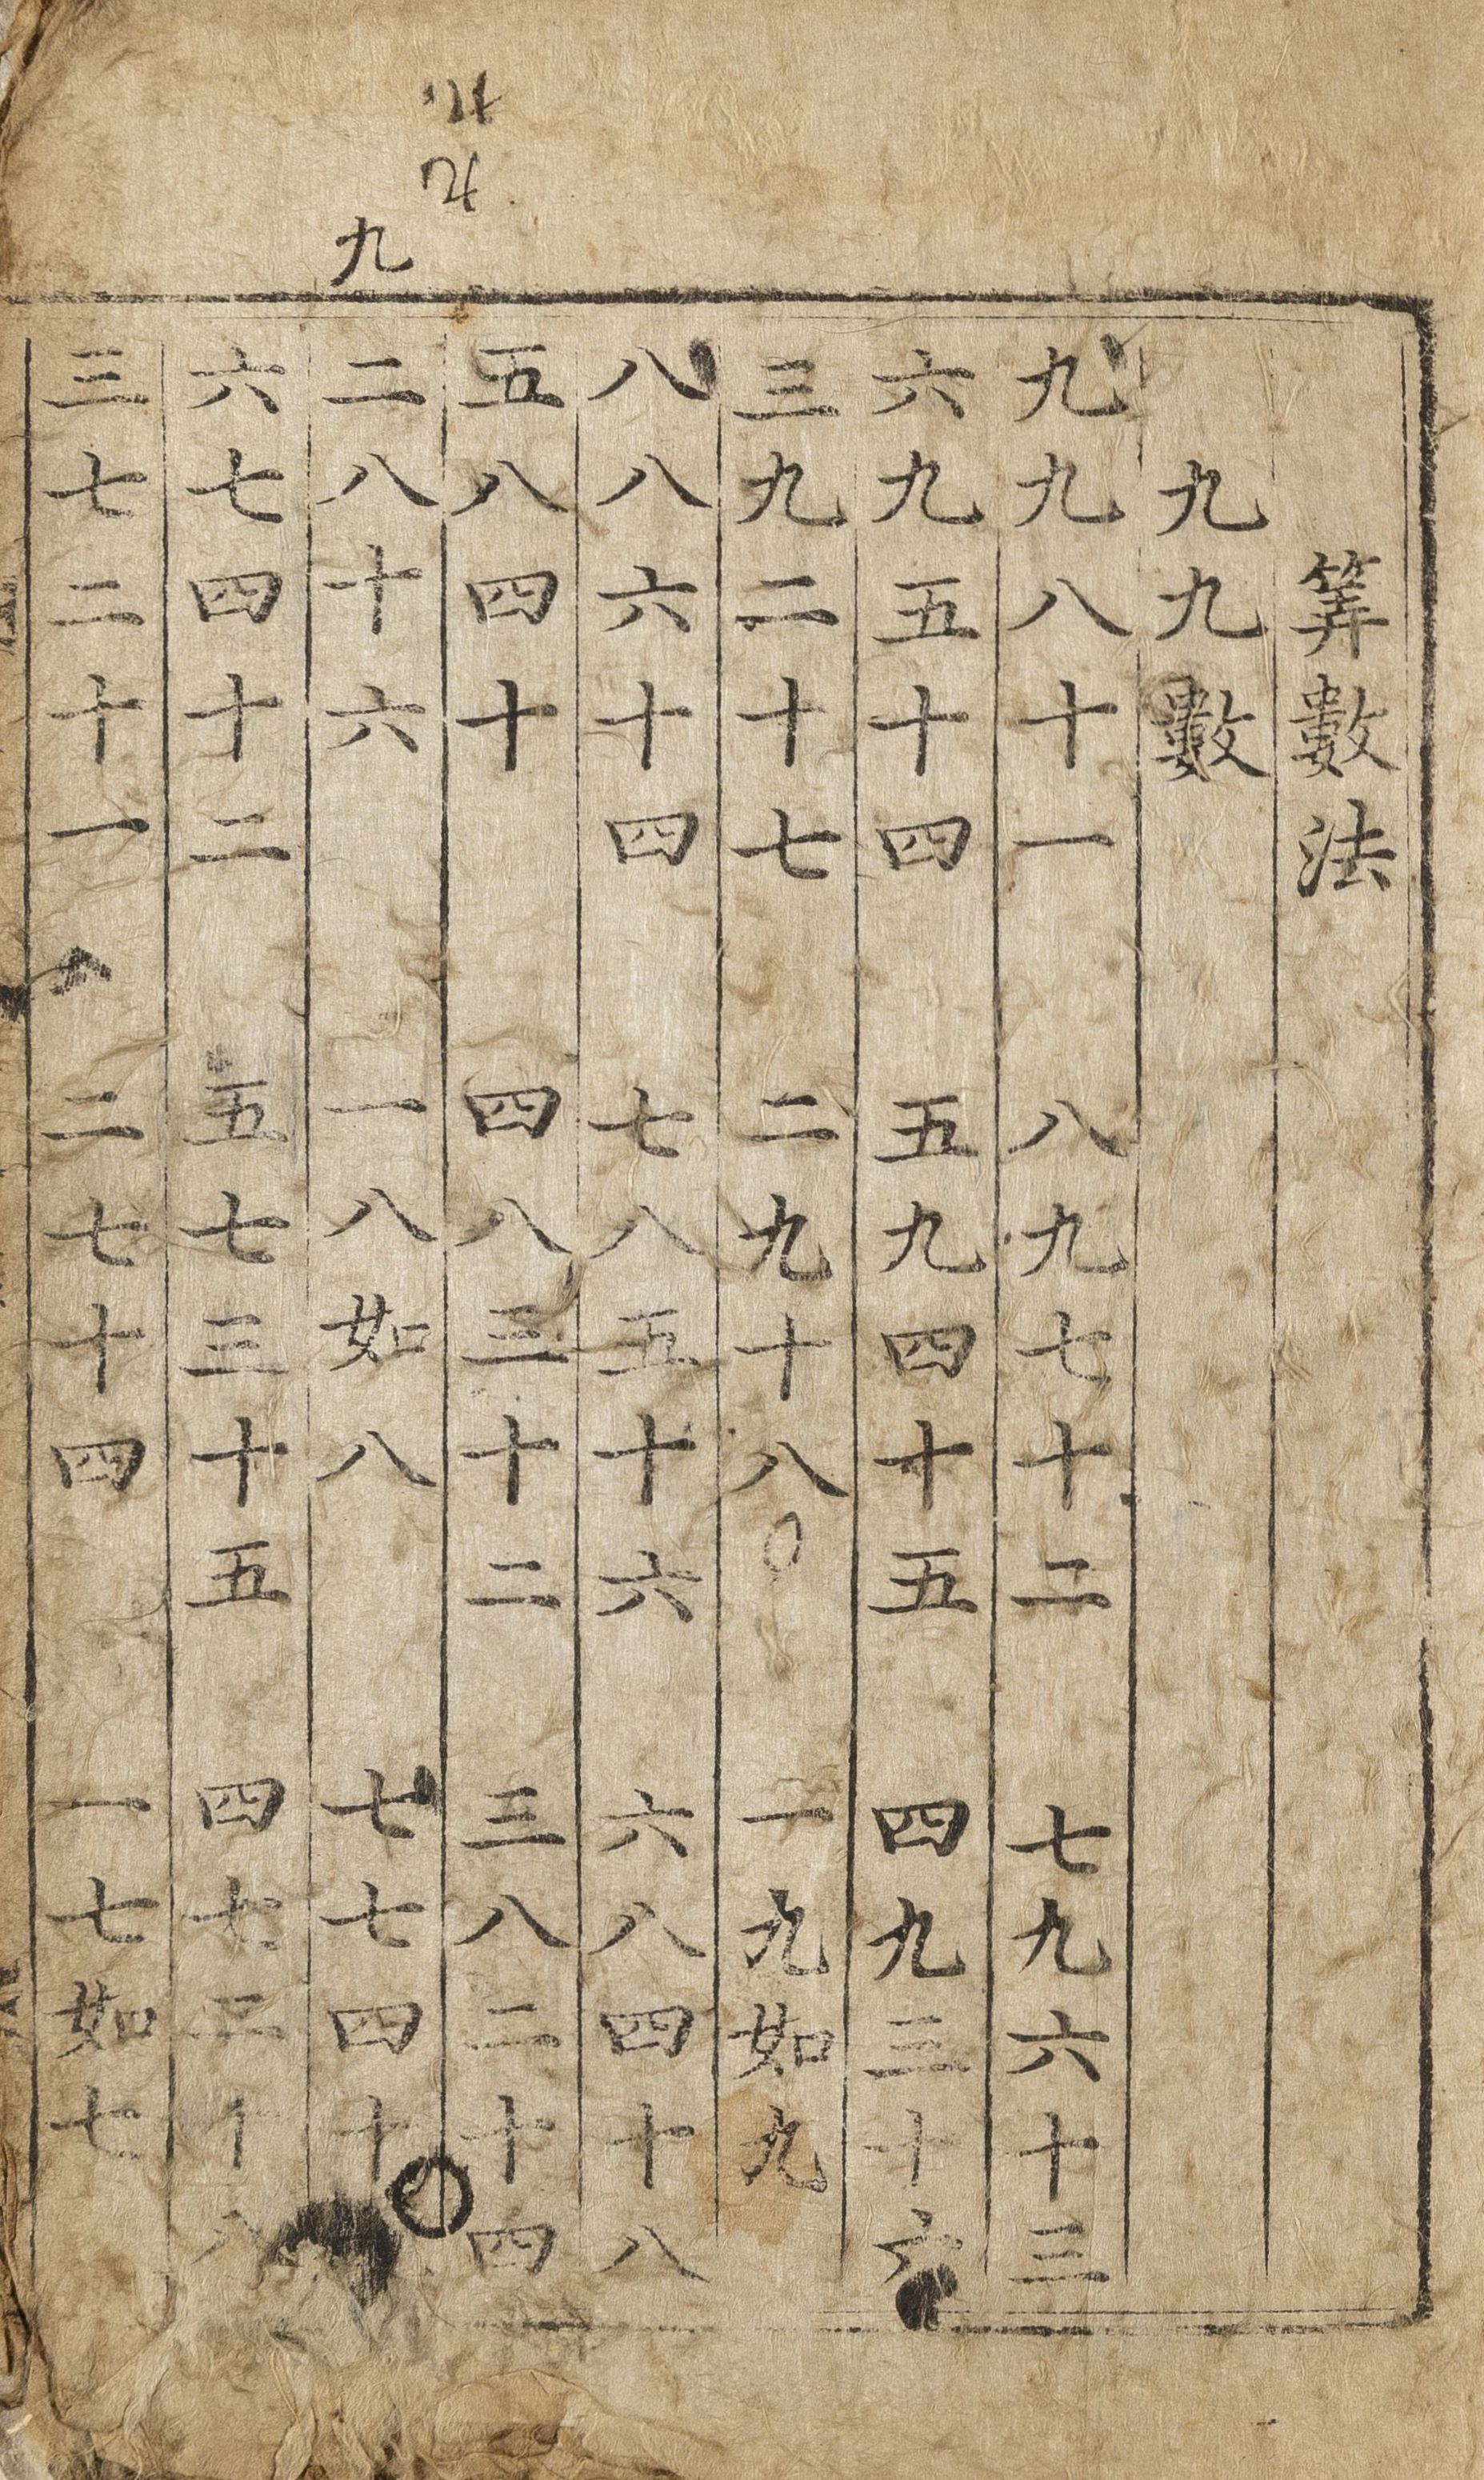 筭數法
九九數
九九八十一 八九七十二 七九六十三
六九五十四 五九四十五 四九三十六
三九二十七 二九十八 一九如九
八八六十四 七八五十六 六八四十八
五八四十 四八三十二 三八二十四
九
二八十六 一八如八 七七四十
六七四十二 五七三十五 四七二十八
三七二十一 二七十四 一七如七